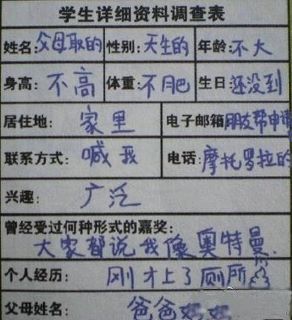 学生详细资料调查表
姓名:父母取的 性别:天生的 年龄:不大
身高:不高 体重:不肥 生日:还没到
居住地:家里 电子邮箱:朋友帮申请
联系方式:喊我 电话:摩托罗拉的
兴趣:广泛
曾经受过何种形式的嘉奖:
大家都说我像奥特曼
个人经历:刚才上了厕所
父母姓名:爸爸妈妈